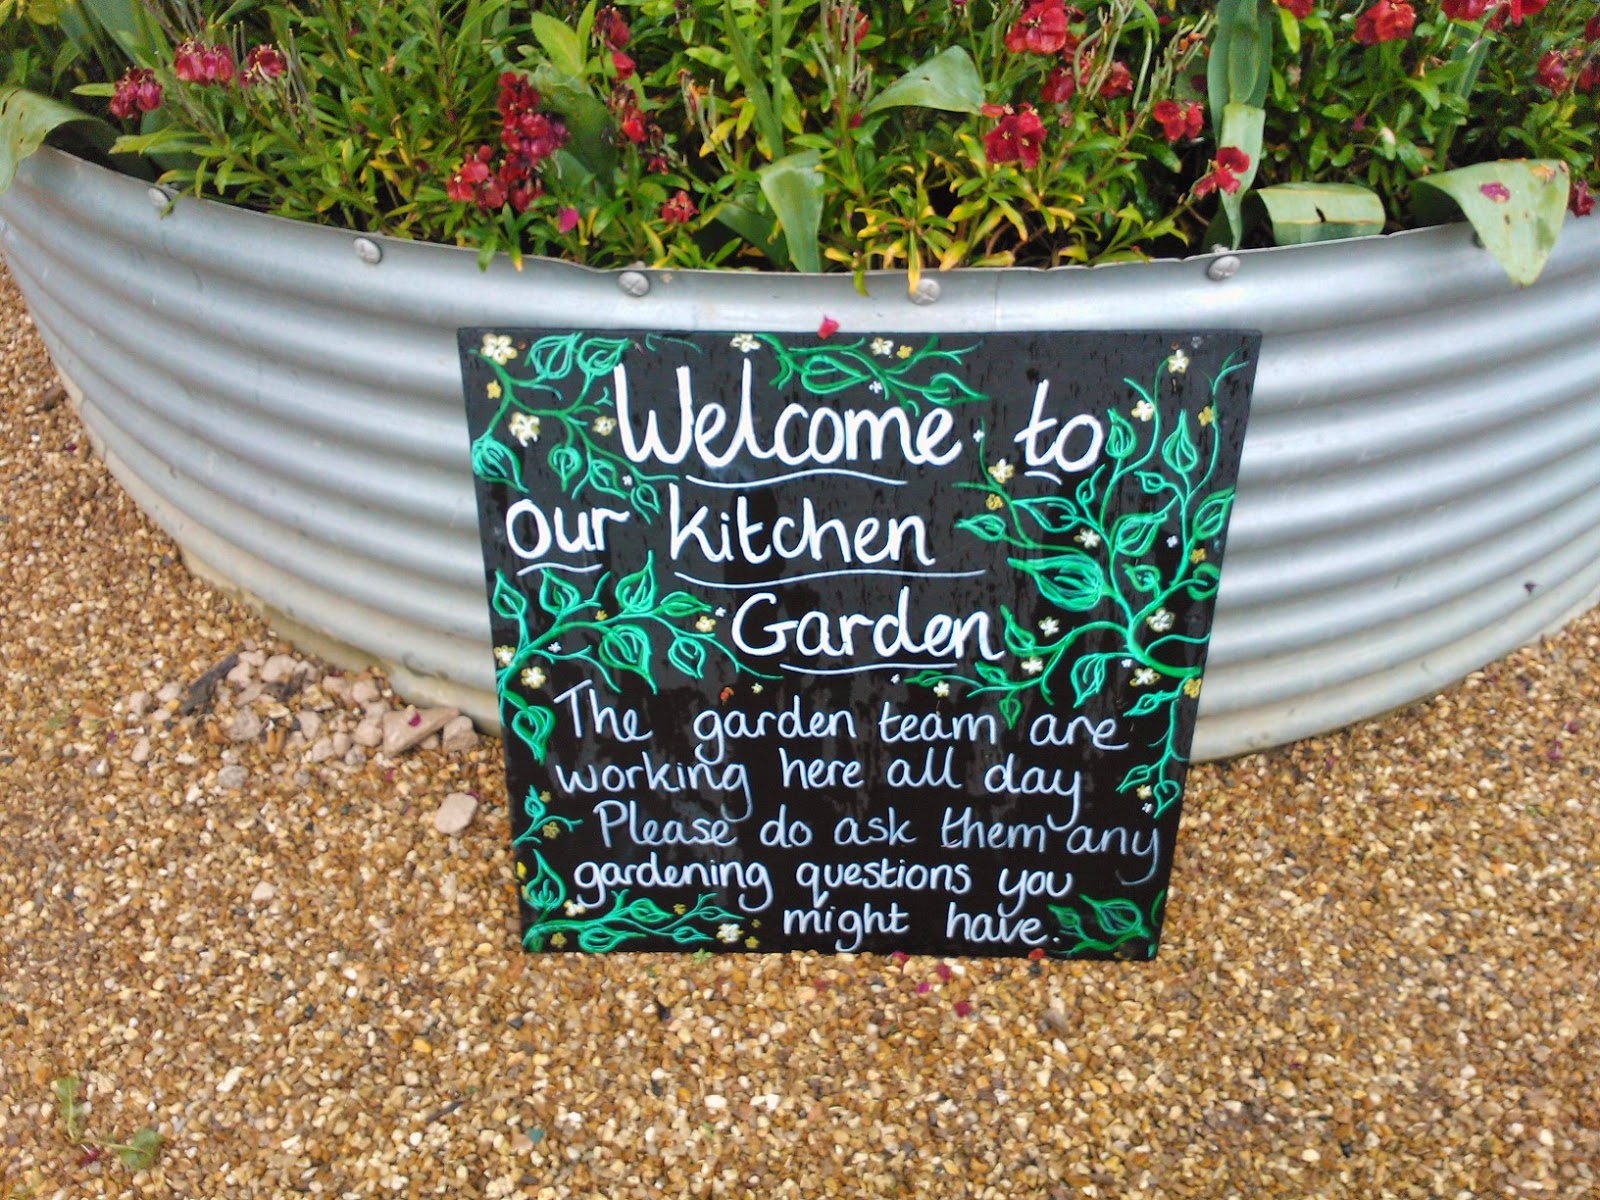 Welcome to
our kitchen
Garden
The garden team are
working here all day
Please do ask them any
gardening questions you
might have.